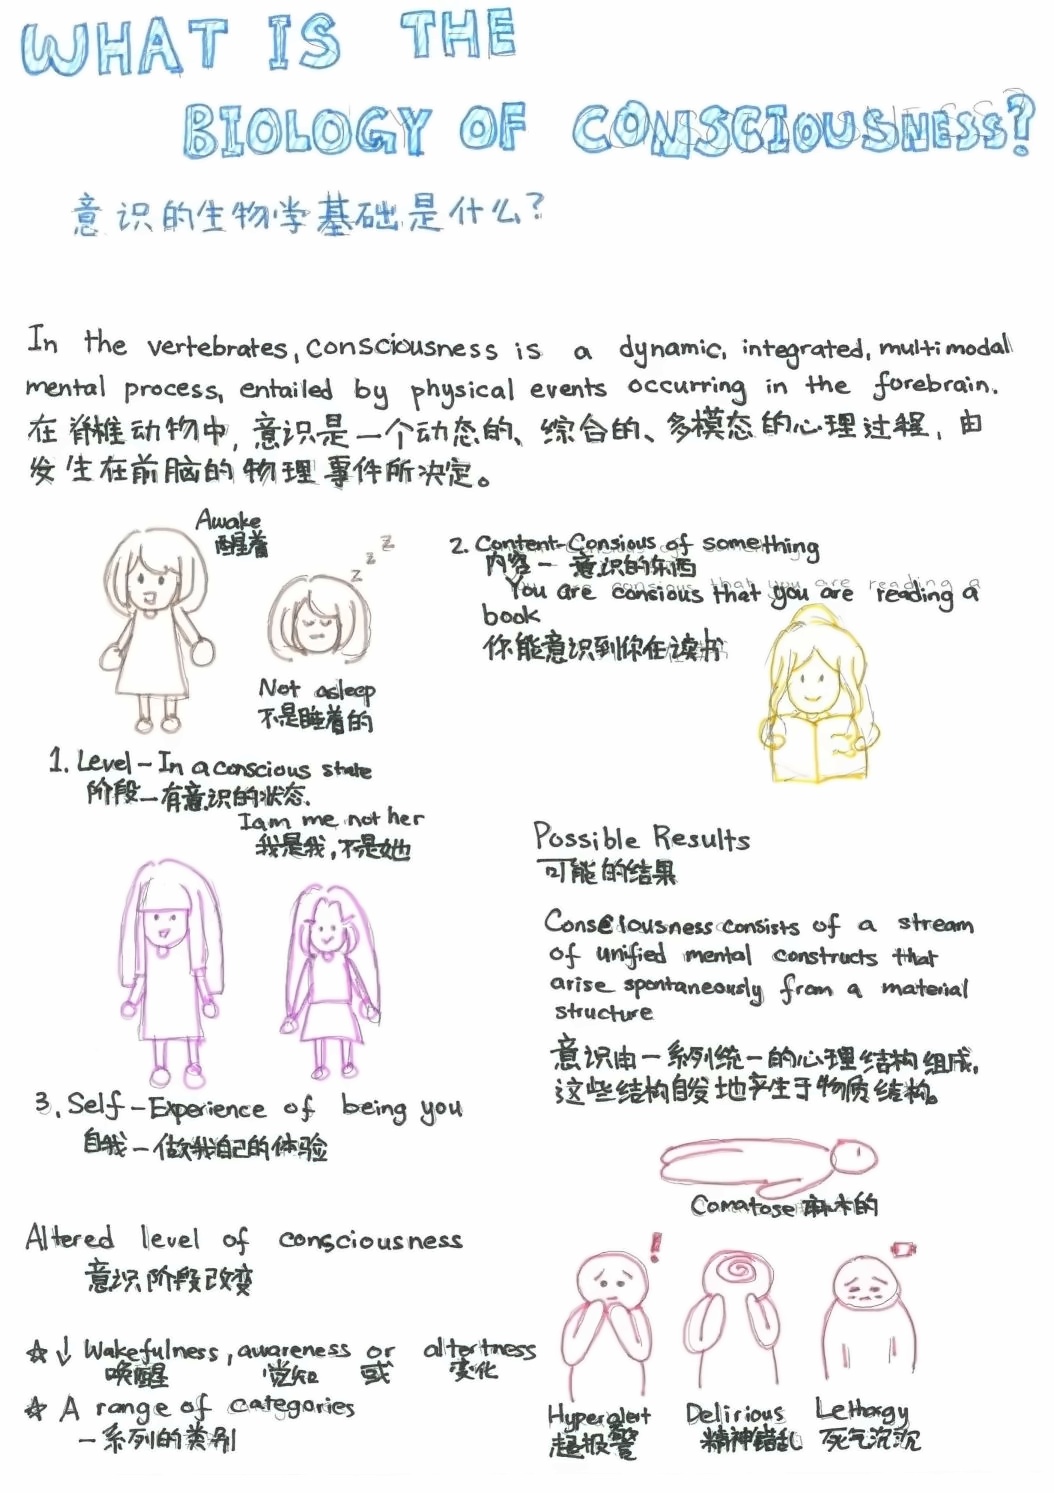 WHAT IS THE
BIOLOGY OF CONSCIOUSNESS?
意识的生物学基础是什么?
In the vertebrates, consciousness is a dynamic, integrated, multimodal
mental process, entailed by physical events occurring in the forebrain.
在脊椎动物中, 意识是一个动态的、综合的、多模态的心理过程, 由
发生在前脑的物理事件所决定。
Awake
醒着
z z z
Not asleep
不是睡着的
1. Level - In a conscious state
阶段 - 有意识的状态.
2. Content - Consious of something
内容 - 意识的东西
You are consious that you are reading a
book
你能意识到你在读书
I am me not her
我是我, 不是她
3. Self - Experience of being you
自我 - 做我自己的体验
Possible Results
可能的结果
Consciousness consists of a stream
of unified mental constructs that
arise spontaneously from a material
structure
意识由一系列统一的心理结构组成,
这些结构自发地产生于物质结构。
Altered level of consciousness
意识阶段改变
☆ ↓ Wakefulness, awareness or altertness
唤醒 觉知 或 变化
☆ A range of categories
一系列的类别
Comatose 麻木的
!
Hyperalert
超报警
Delirious
精神错乱
Lethargy
死气沉沉